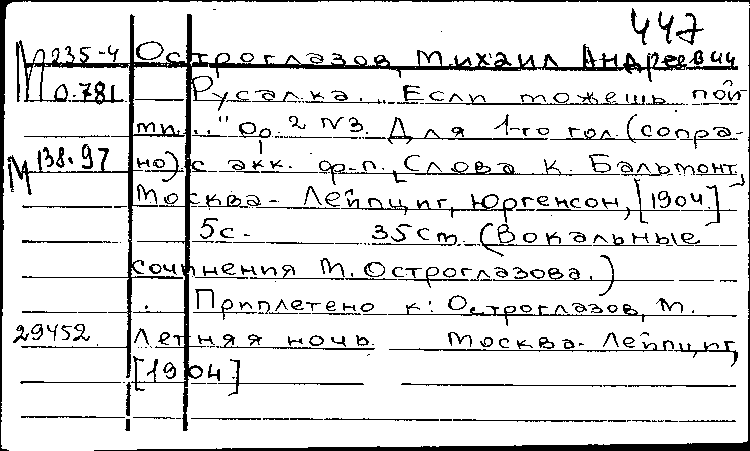 447
М 235-4 Остроглазов, Михаил Андреевич
0.781 Русалка. "Если можешь пой
ми..." Op. 2 №3. Для 1-го гол. (сопра-
М 138.97 но) с акк. ф-п., Слова К. Бальмонт,
Москва - Лейпциг, Юргенсон, [1904]
5с. 35cm (Вокальные
сочинения М. Остроглазова.)
Приплетено к: Остроглазов, М.
29452 Летняя ночь. Москва - Лейпциг,
[1904]